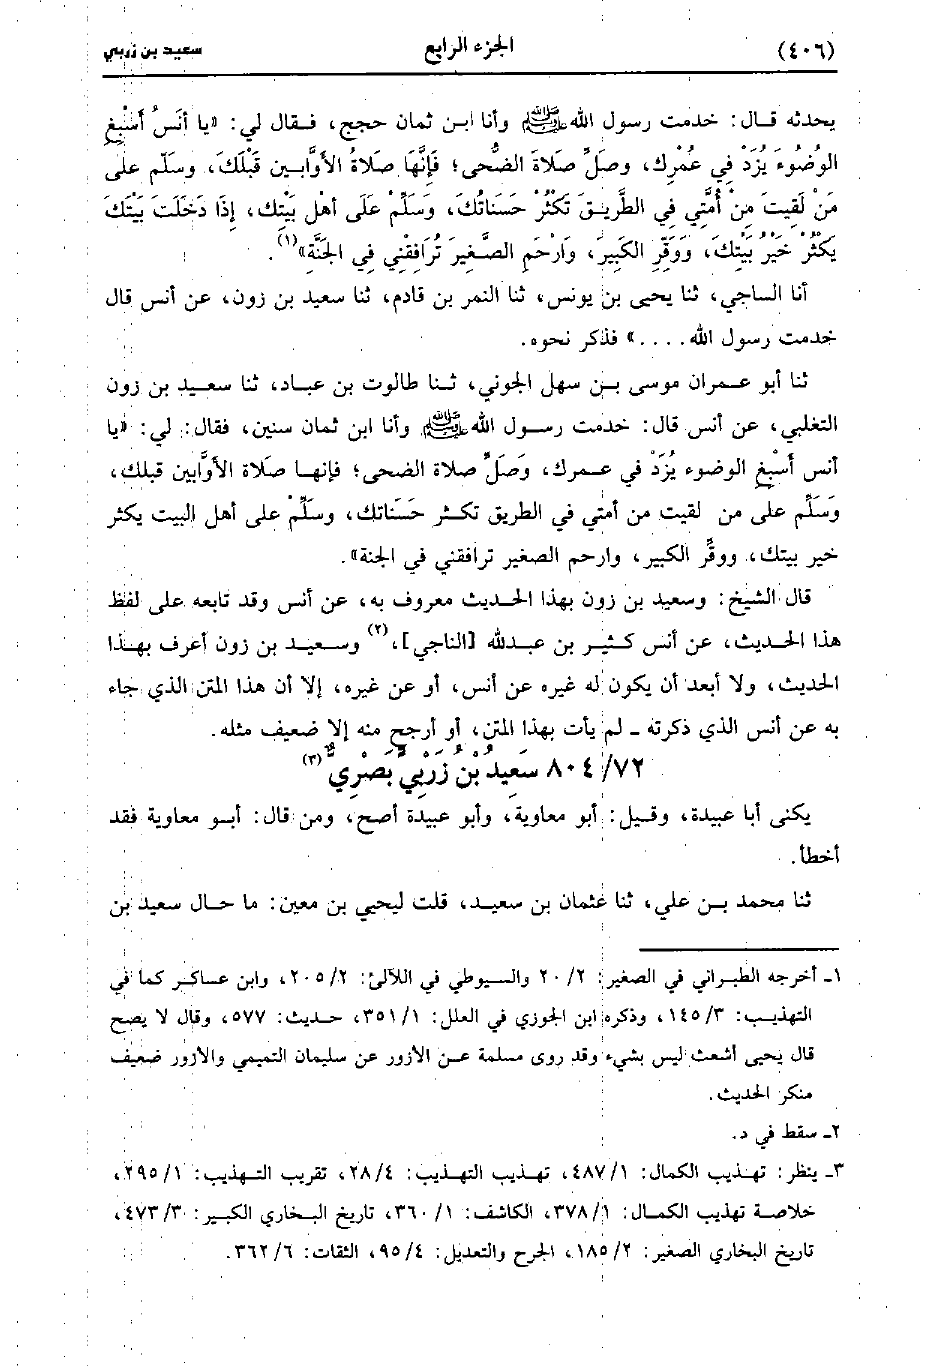 (٤٠٦) الجزء الرابع سعيد بن زربي
يحدثه قال: خدمت رسول الله ﷺ وأنا ابن ثمان حجج، فقال لي: «يا أنَسُ أَسْبِغِ
الوُضُوءَ يُزَدْ فِي عُمْرِك، وصَلِّ صَلاَةَ الضُّحى؛ فَإِنَّها صَلاَةُ الأوَّابين قَبْلَكَ، وسَلّم على
مَنْ لَقِيتَ مِنْ أُمَّتِي فِي الطَّرِيقَ تَكْثُرْ حَسَنَاتُكَ، وَسَلِّمْ عَلَى أهْلِ بَيْتِك، إِذَا دَخَلَتَ بَيْتَكَ
يَكْثُرْ خَيْرُ بَيْتِكَ، ووَقِّرِ الكَبِيرَ، وَارْحَمِ الصَّغِيرَ تُرَافِقْنِي فِي الجَنَّة»(١).
أنا الساجي، ثنا يحيى بن يونس، ثنا النمر بن قادم، ثنا سعيد بن زون، عن أنس قال
خدمت رسول الله ....» فذكر نحوه.
ثنا أبو عمران موسى بن سهل الجوني، ثنا طالوت بن عباد، ثنا سعيد بن زون
التغلبي، عن أنس قال: خدمت رسول الله ﷺ وأنا ابن ثمان سنين، فقال: لي: «يا
أنس أَسْبِغِ الوضوء يُزَدْ في عمرك، وَصَلِّ صلاة الضحى؛ فإنها صَلاَة الأوَّابين قبلك،
وَسَلِّم على من لقيت من أمتي في الطريق تكثر حَسَنَاتك، وسَلِّمْ على أهل البيت يكثر
خير بيتك، ووقِّر الكبير، وارحم الصغير ترافقني في الجنة».
قال الشيخ: وسعيد بن زون بهذا الحديث معروف به، عن أنس وقد تابعه على لفظ
هذا الحديث، عن أنس كثير بن عبدالله [الناجي]،(٢) وسعيد بن زون أعرف بهذا
الحديث، ولا أبعد أن يكون له غيره عن أنس، أو عن غيره، إلا أن هذا المتن الذي جاء
به عن أنس الذي ذكرته ـ لم يأت بهذا المتن، أو أرجح منه إلا ضعيف مثله.
٨٠٤/٧٢ سَعِيدُ بْنُ زَرْبِيٍّ بَصْرِيٌّ(٣)
يكنى أبا عبيدة، وقيل: أبو معاوية، وأبو عبيدة أصح، ومن قال: أبو معاوية فقد
أخطأ.
ثنا محمد بن علي، ثنا عثمان بن سعيد، قلت ليحيي بن معين: ما حال سعيد بن
١ـ أخرجه الطبراني في الصغير: ٢٠/٢ والسيوطي في اللآلئ: ٢٠٥/٢، وابن عساكر كما في
التهذيب: ١٤٥/٣، وذكره ابن الجوزي في العلل: ٣٥١/١، حديث: ٥٧٧، وقال لا يصح
قال يحيى أشعث ليس بشيء وقد روى مسلمة عن الأزور عن سليمان التميمي والأزور ضعيف
منكر الحديث.
٢ـ سقط في د.
٣ـ ينظر: تهذيب الكمال: ٤٨٧/١، تهذيب التهذيب: ٢٨/٤، تقريب التهذيب: ٢٩٥/١،
خلاصة تهذيب الكمال: ٣٧٨/١، الكاشف: ٣٦٠/١، تاريخ البخاري الكبير: ٤٧٣/٣،
تاريخ البخاري الصغير: ١٨٥/٢، الجرح والتعديل: ٩٥/٤، الثقات: ٣٦٢/٦.